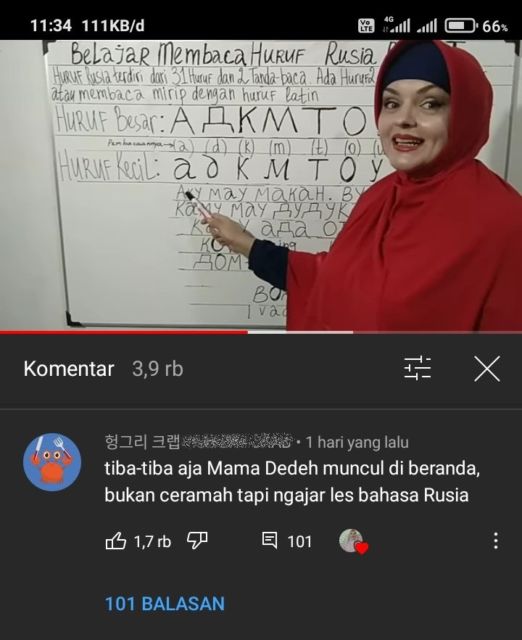 11:34 111KB/d Vo LTE 4G 66%
Belajar Membaca Huruf Rusia
Huruf Rusia terdiri dari 31 Huruf dan 2 Tanda baca. Ada Huruf2
atau membaca mirip dengan huruf latin
Huruf Besar: А Д К М Т О
(a) (d) (k) (m) (t) (o)
Huruf Kecil: а д к м т о у
Аку мау макан.
Каму мау дудук
ада
Дом
Komentar 3,9 rb
헝그리 크랩 • 1 hari yang lalu
tiba-tiba aja Mama Dedeh muncul di beranda,
bukan ceramah tapi ngajar les bahasa Rusia
1,7 rb 101
101 BALASAN